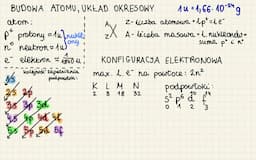 BUDOWA ATOMU, UKŁAD OKRESOWY
1u = 1,66·10⁻²⁴g
atom:
p⁺ protony = 1u
n⁰ neutron = 1u
nukleony
e⁻ elektron = 1/1840 u
A
Z
X
Z - liczba atomowa = l. p⁺ = l. e⁻
A - liczba masowa = l. nukleonów =
suma p⁺ i n⁰
kolejność zapełniania
podpowłok:
1s
2s 2p
3s 3p 3d
4s 4p 4d 4f
5s 5p 5d 5f
KONFIGURACJA ELEKTRONOWA
max. l. e⁻ na powłoce: 2n²
K L M N
2 8 18 32
podpowłoki:
s² p⁶ d¹⁰ f¹⁴
0 1 2 3